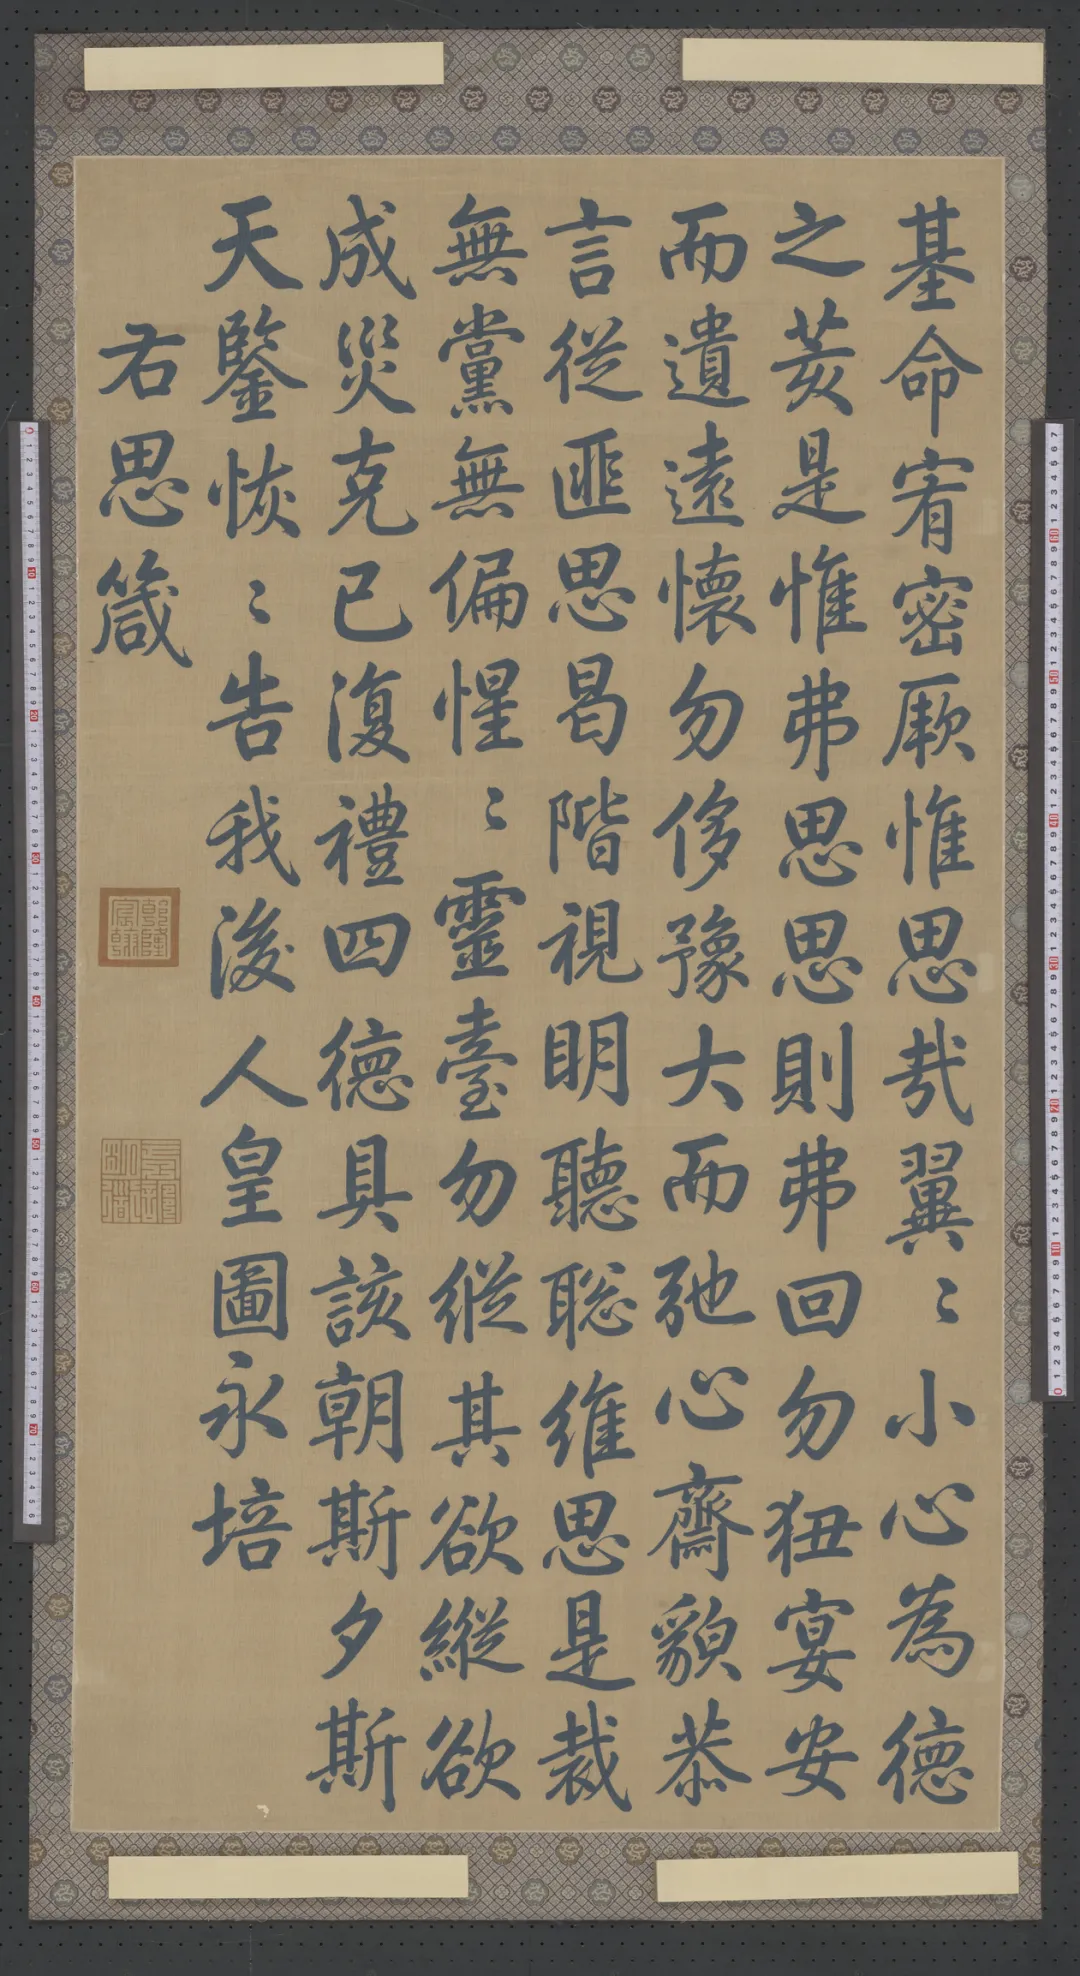 基命宥密厥惟思哉翼〻小心為德
之荄是惟弗思思則弗回勿狃宴安
而遺遠懷勿侈豫大而弛心齋貌恭
言從匪思曷階視明聽聰維思是裁
無黨無偏惺〻靈臺勿縱其欲縱欲
成災克己復禮四德具該朝斯夕斯
天鑒恢〻告我後人皇圖永培
右思箴
乾隆宸翰